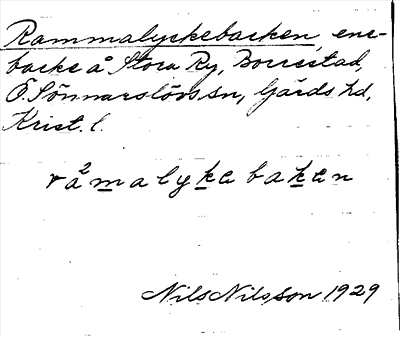 Rammalyckebacken, ene-
backe å Stora Ry, Borrestad,
Ö. Sönnarslövs sn, Gärds hd,
Krist. l.
ra²malykebaken
Nils Nilsson 1929